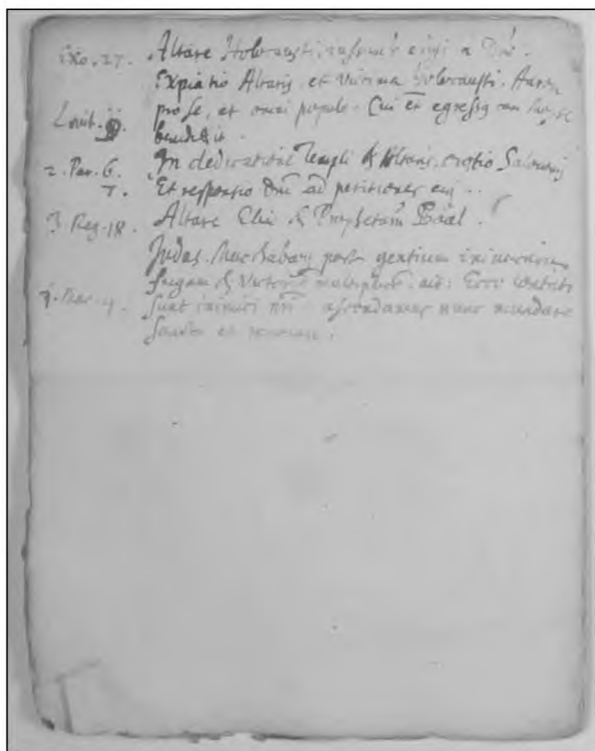 Exo. 27. Altare Holocausti, erigi a Dno.
Expiatio Altaris, et victima holocausti. Aaron
Levit. pro se, et omni populo. Cui et egressus
benedixit.
2. Par. 6. In dedicatione Templi & Altaris, oratio Salomonis
7. Et responsio Dni ad petitiones eius.
3. Reg. 18. Altare Eliae & Baal.
Judas Machabaeus post gentium
fugam & victoria ait: Ecce contriti
sunt inimici nri ascendamus nunc mundare
sancta et renovare.